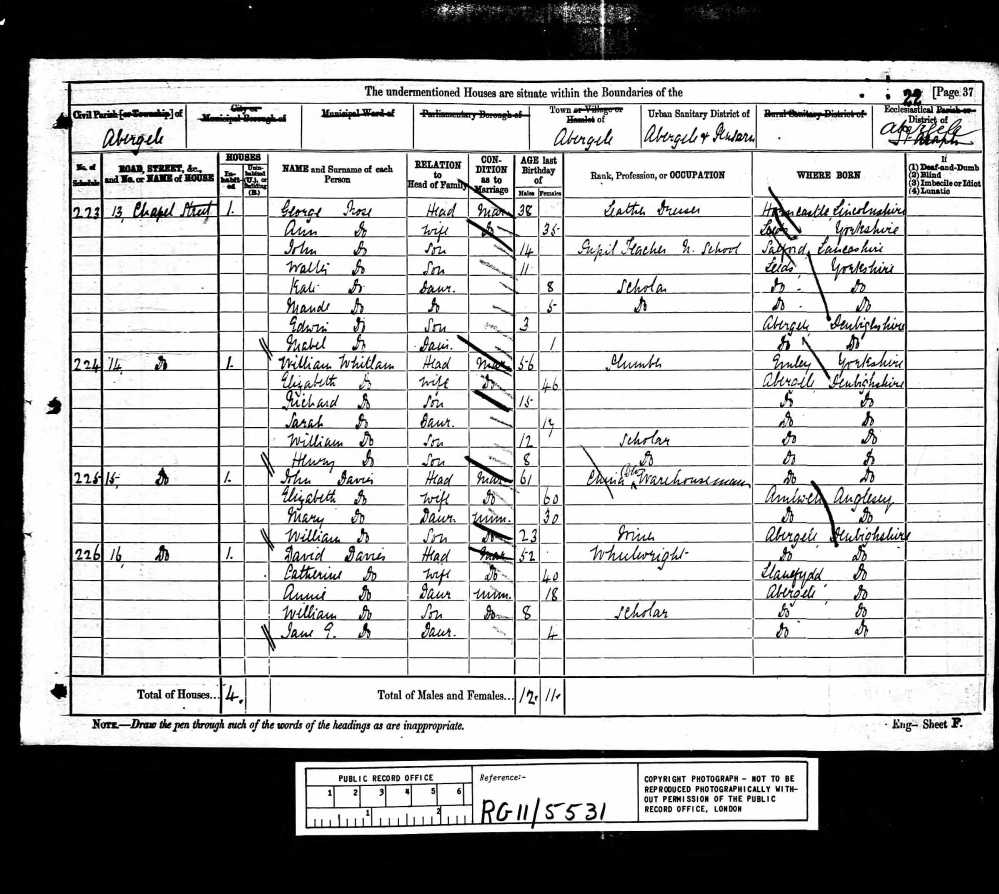 The undermentioned Houses are situate within the Boundaries of the
22 [Page 37
Civil Parish [or Township] of
Abergele
City or Municipal Borough of
Municipal Ward of
Parliamentary Borough of
Town or Village or Hamlet of
Abergele
Urban Sanitary District of
Abergele & Pensarn
Rural Sanitary District of
Ecclesiastical Parish or District of
Abergele
St Asaph
No. of Schedule
ROAD, STREET, &c., and No. or NAME of HOUSE
HOUSES
Inhabited
Uninhabited (U.), or Building (B.)
NAME and Surname of each Person
RELATION to Head of Family
CONDITION as to Marriage
AGE last Birthday of
Males
Females
Rank, Profession, or OCCUPATION
WHERE BORN
If
(1) Deaf-and-Dumb
(2) Blind
(3) Imbecile or Idiot
(4) Lunatic
223 13, Chapel Street 1. George Head Mar 38 Leather Dresser Horncastle Lincolnshire
Ann Do Wife Do 35 Yorkshire
John Do Son 14 Pupil Teacher N. School Salford, Lancashire
Do Son 11 Leeds Yorkshire
Kate Do Daur. 8 Scholar Do Do
Maude Do Do 5 Do Do Do
Edwin Do Son 3 Abergele Denbighshire
Mabel Do Daur. 1 Do Do
224 14, Do 1. William Whitlam Head Mar 56 Plumber Emley Yorkshire
Elizabeth Do Wife Do 46 Abergele Denbighshire
Richard Do Son 15 Do Do
Sarah Do Daur. 17 Do Do
William Do Son 12 Scholar Do Do
Henry Do Son 8 Do Do Do
225 15, Do 1. John Davies Head Mar 61 China Warehouseman Do Do
Elizabeth Do Wife Do 60 Amlwch Anglesey
Mary Do Daur. Unm. 30 Do Do
William Do Son Do 23 Abergele Denbighshire
226 16, Do 1. David Davies Head Mar 52 Wheelwright Do Do
Catherine Do Wife Do 40 Llanefydd Do
Annie Do Daur Unm. 18 Abergele Do
William Do Son Do 8 Scholar Do Do
Jane E. Do Daur. 4 Do Do
Total of Houses... 4. Total of Males and Females... 12. 11.
NOTE.—Draw the pen through such of the words of the headings as are inappropriate.
Eng— Sheet F.
PUBLIC RECORD OFFICE
1 2 3 4 5 6
1 2
Reference:-
RG11/5531
COPYRIGHT PHOTOGRAPH - NOT TO BE
REPRODUCED PHOTOGRAPHICALLY WITH-
OUT PERMISSION OF THE PUBLIC
RECORD OFFICE, LONDON